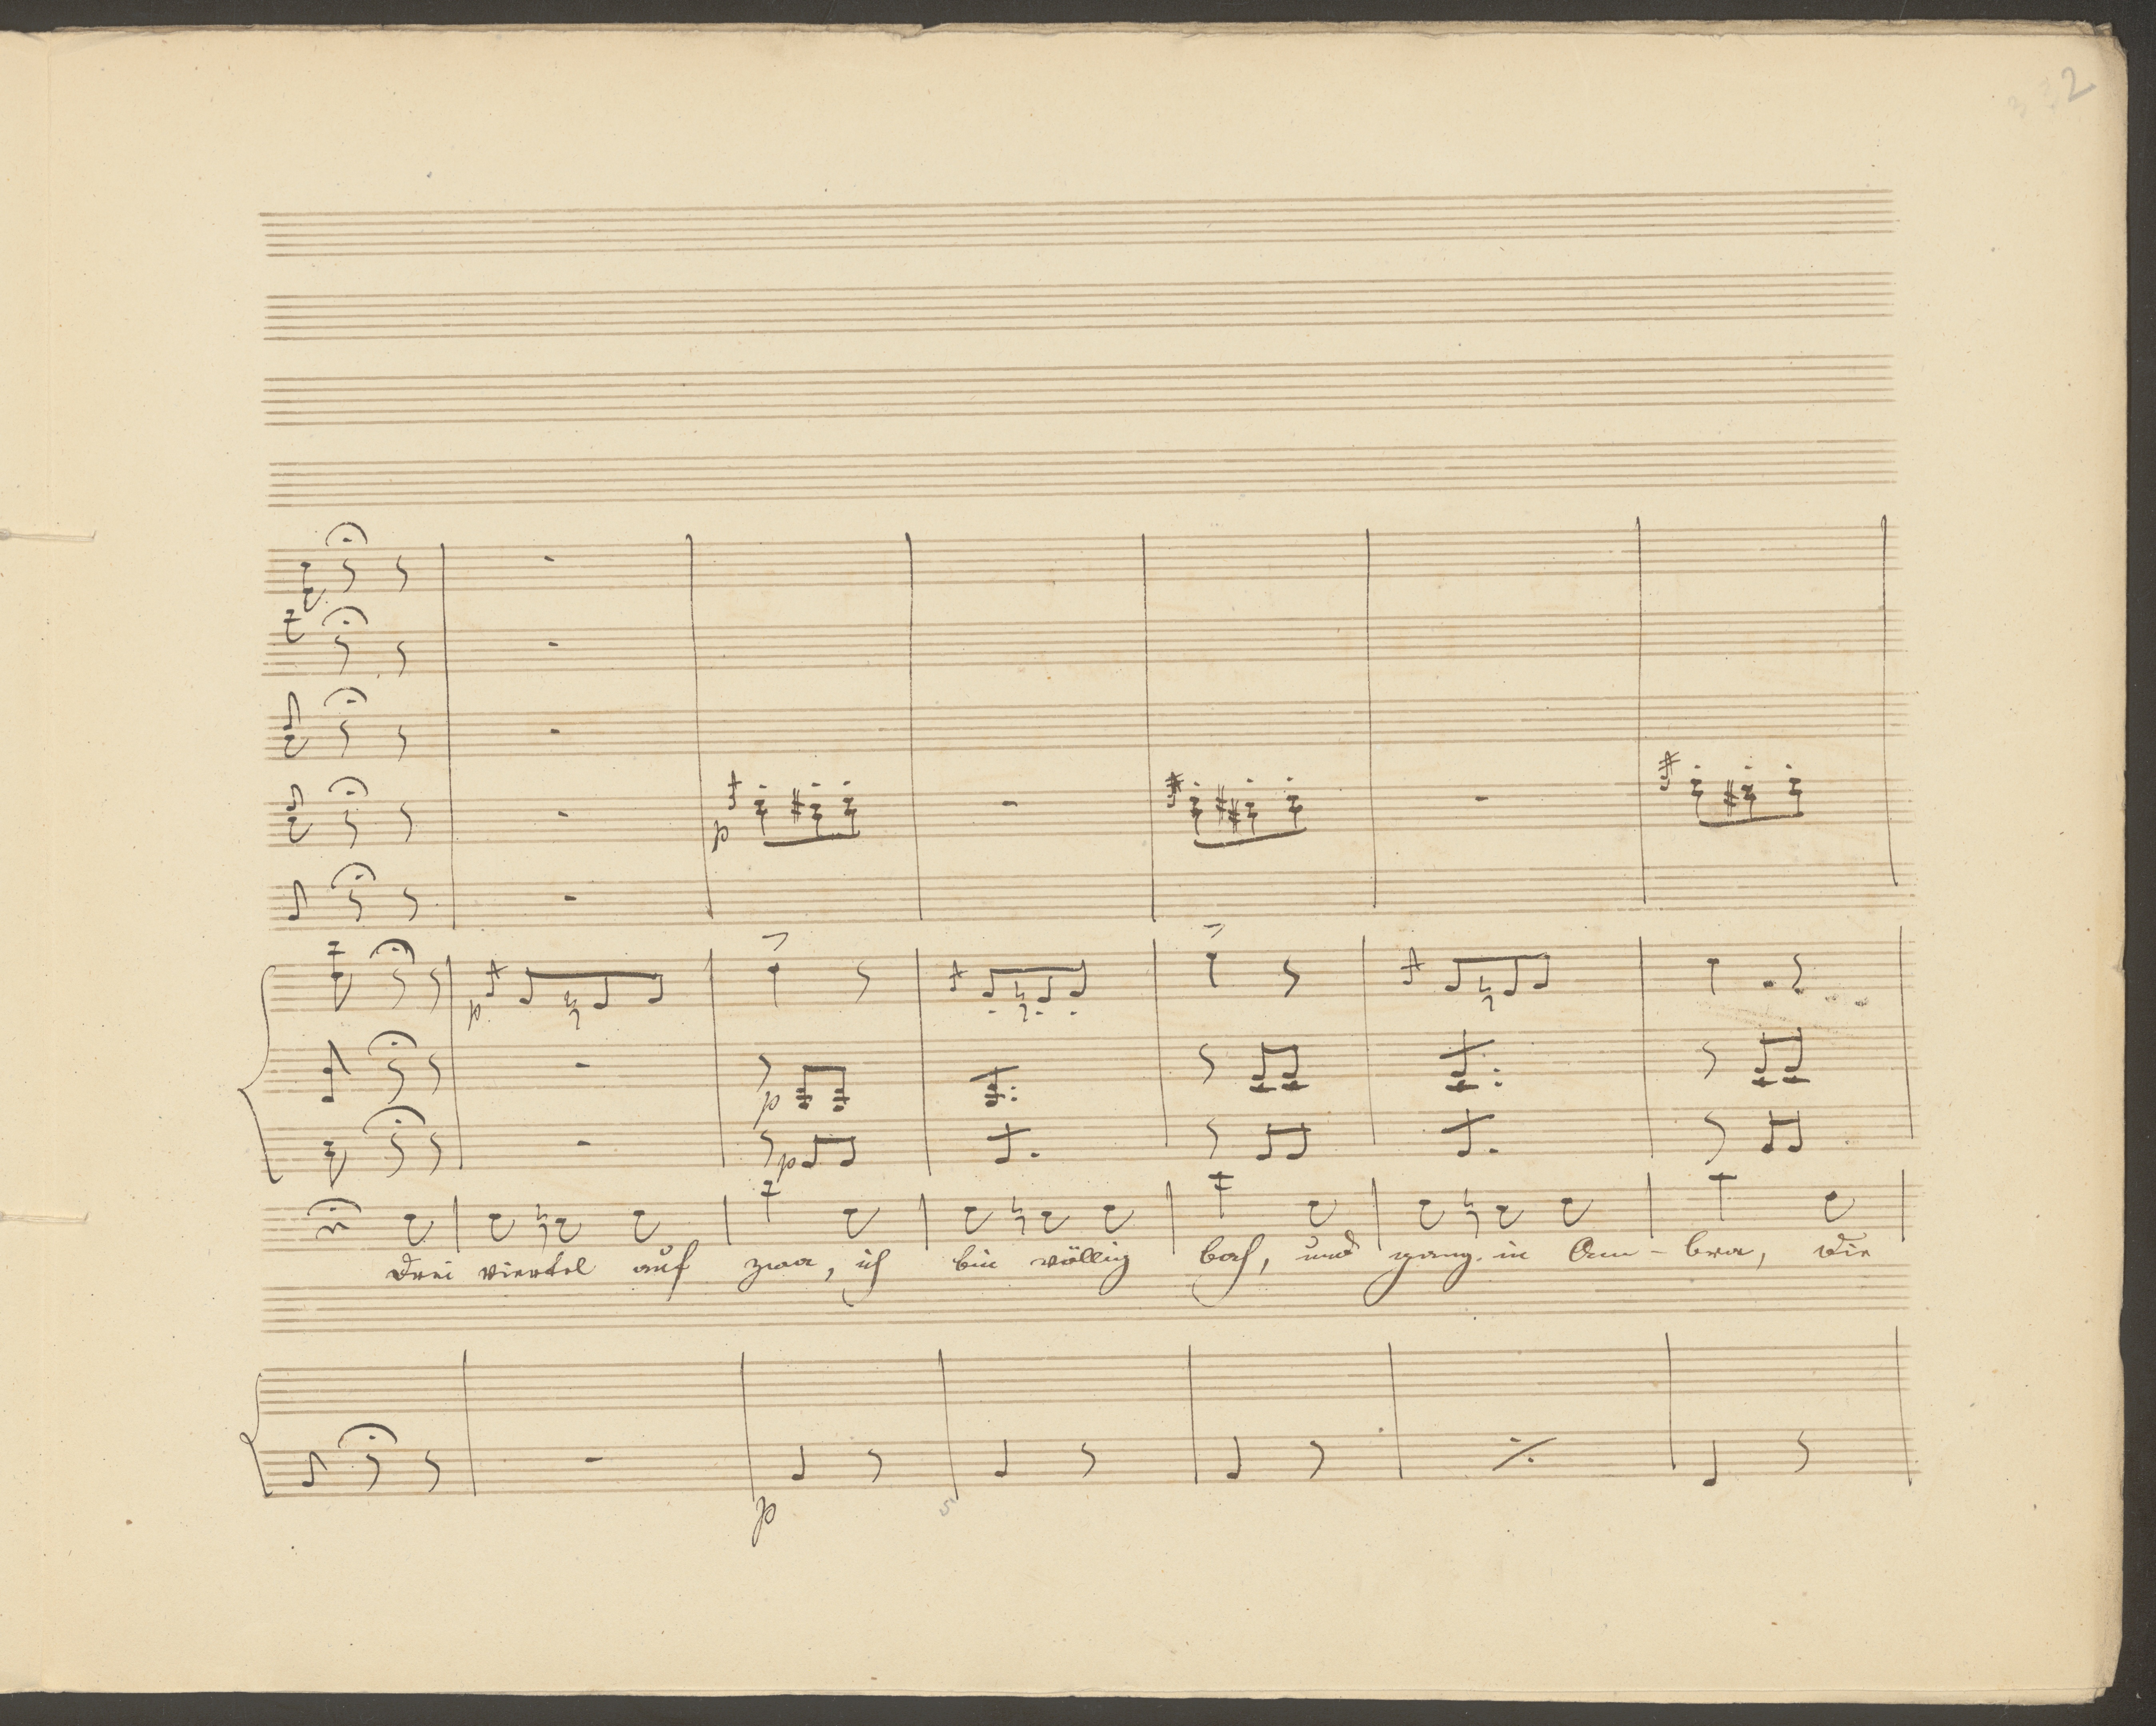 2
p
p
p
p
p
Drei viertel auf zwa, ich bin völlig bas, und ganz in Om - bra, die
p
5